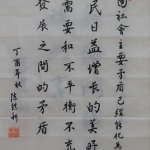 国社会主要矛盾已经转化为
民日益增长的美好
需要和不平衡不充
发展之间的矛盾
丁酉年秋